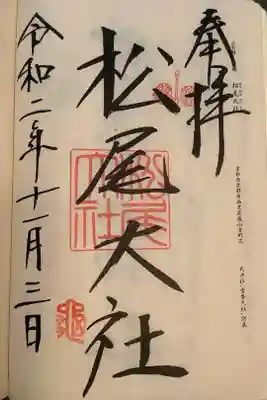 奉拝
松尾大社
令和二年十一月三日
松尾大社